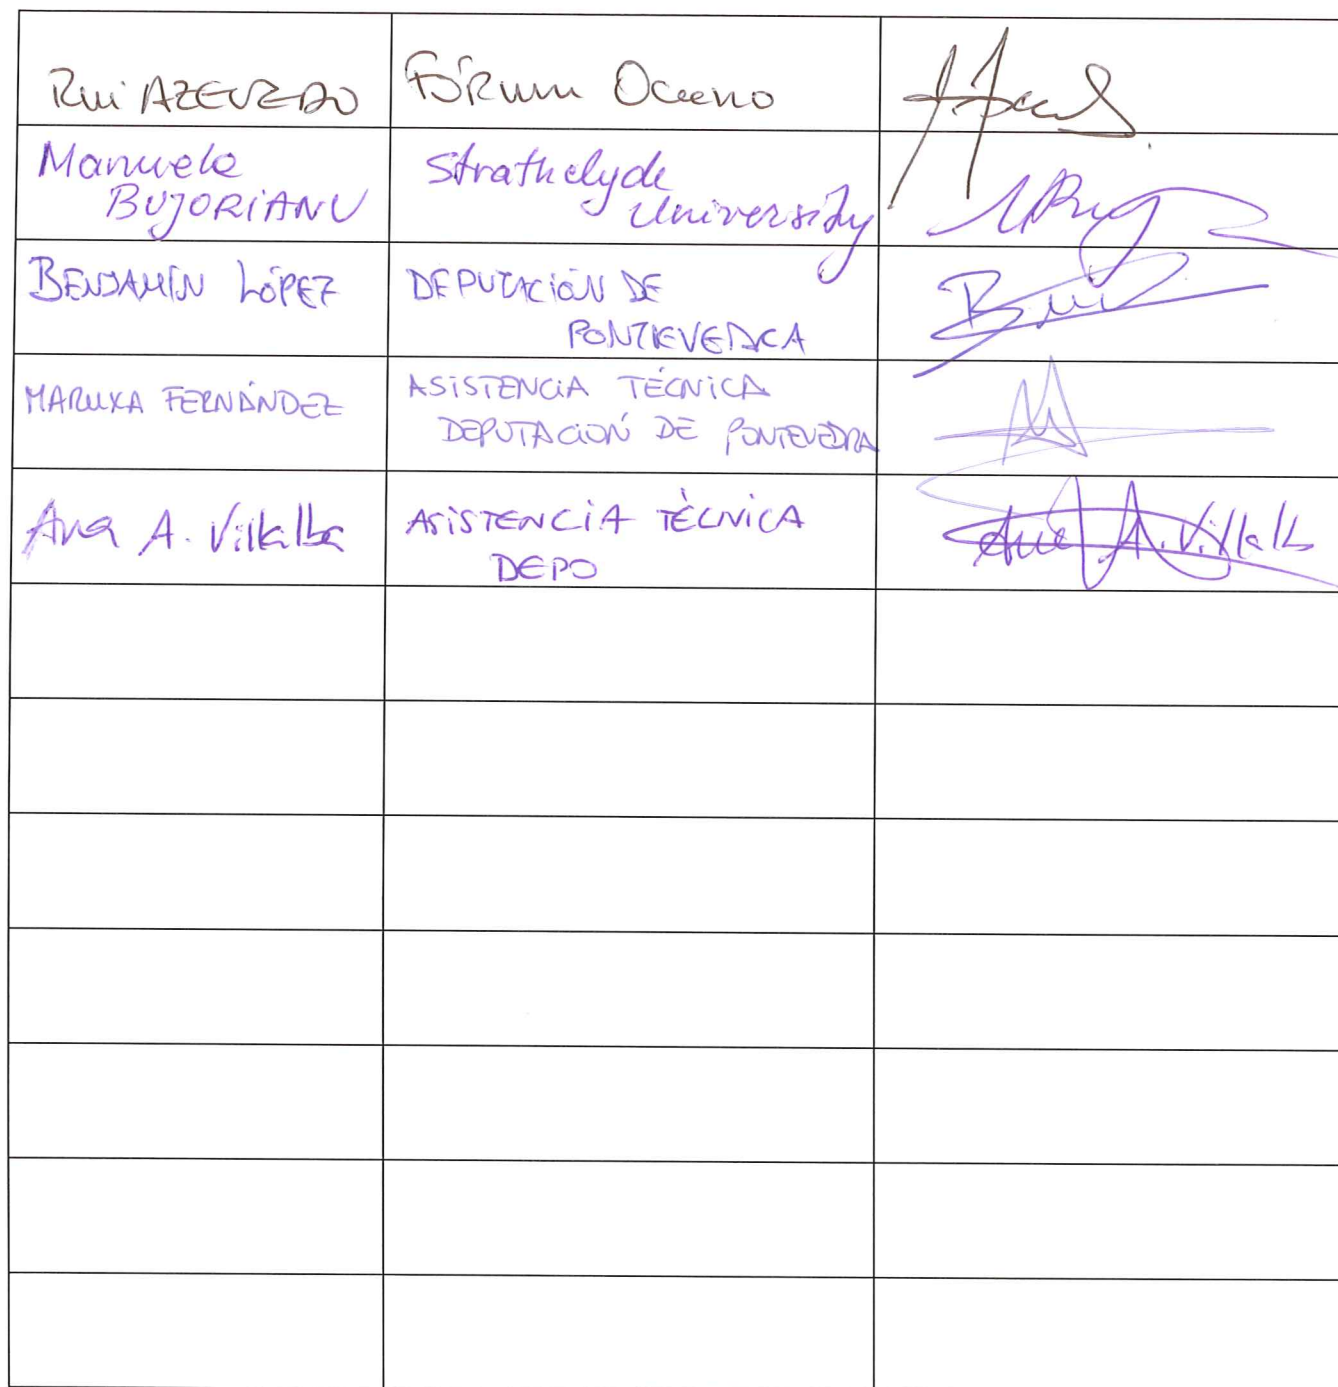 Rui AZEVEDO Fórum Oceano
Manuela Strathclyde
BUJORIANU University
BENJAMÍN LÓPEZ DEPUTACIÓN DE
PONTEVEDRA
MARUXA FERNÁNDEZ ASISTENCIA TÉCNICA
DEPUTACIÓN DE PONTEVEDRA
Ana A. Villalba ASISTENCIA TÉCNICA Ana A. Villalb
DEPO